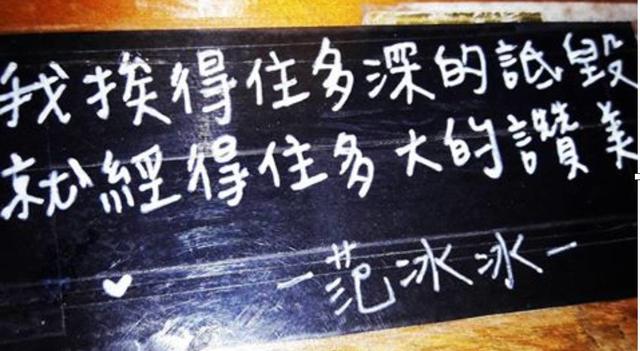 我挨得住多深的詆毀
就經得住多大的讚美
-范冰冰-